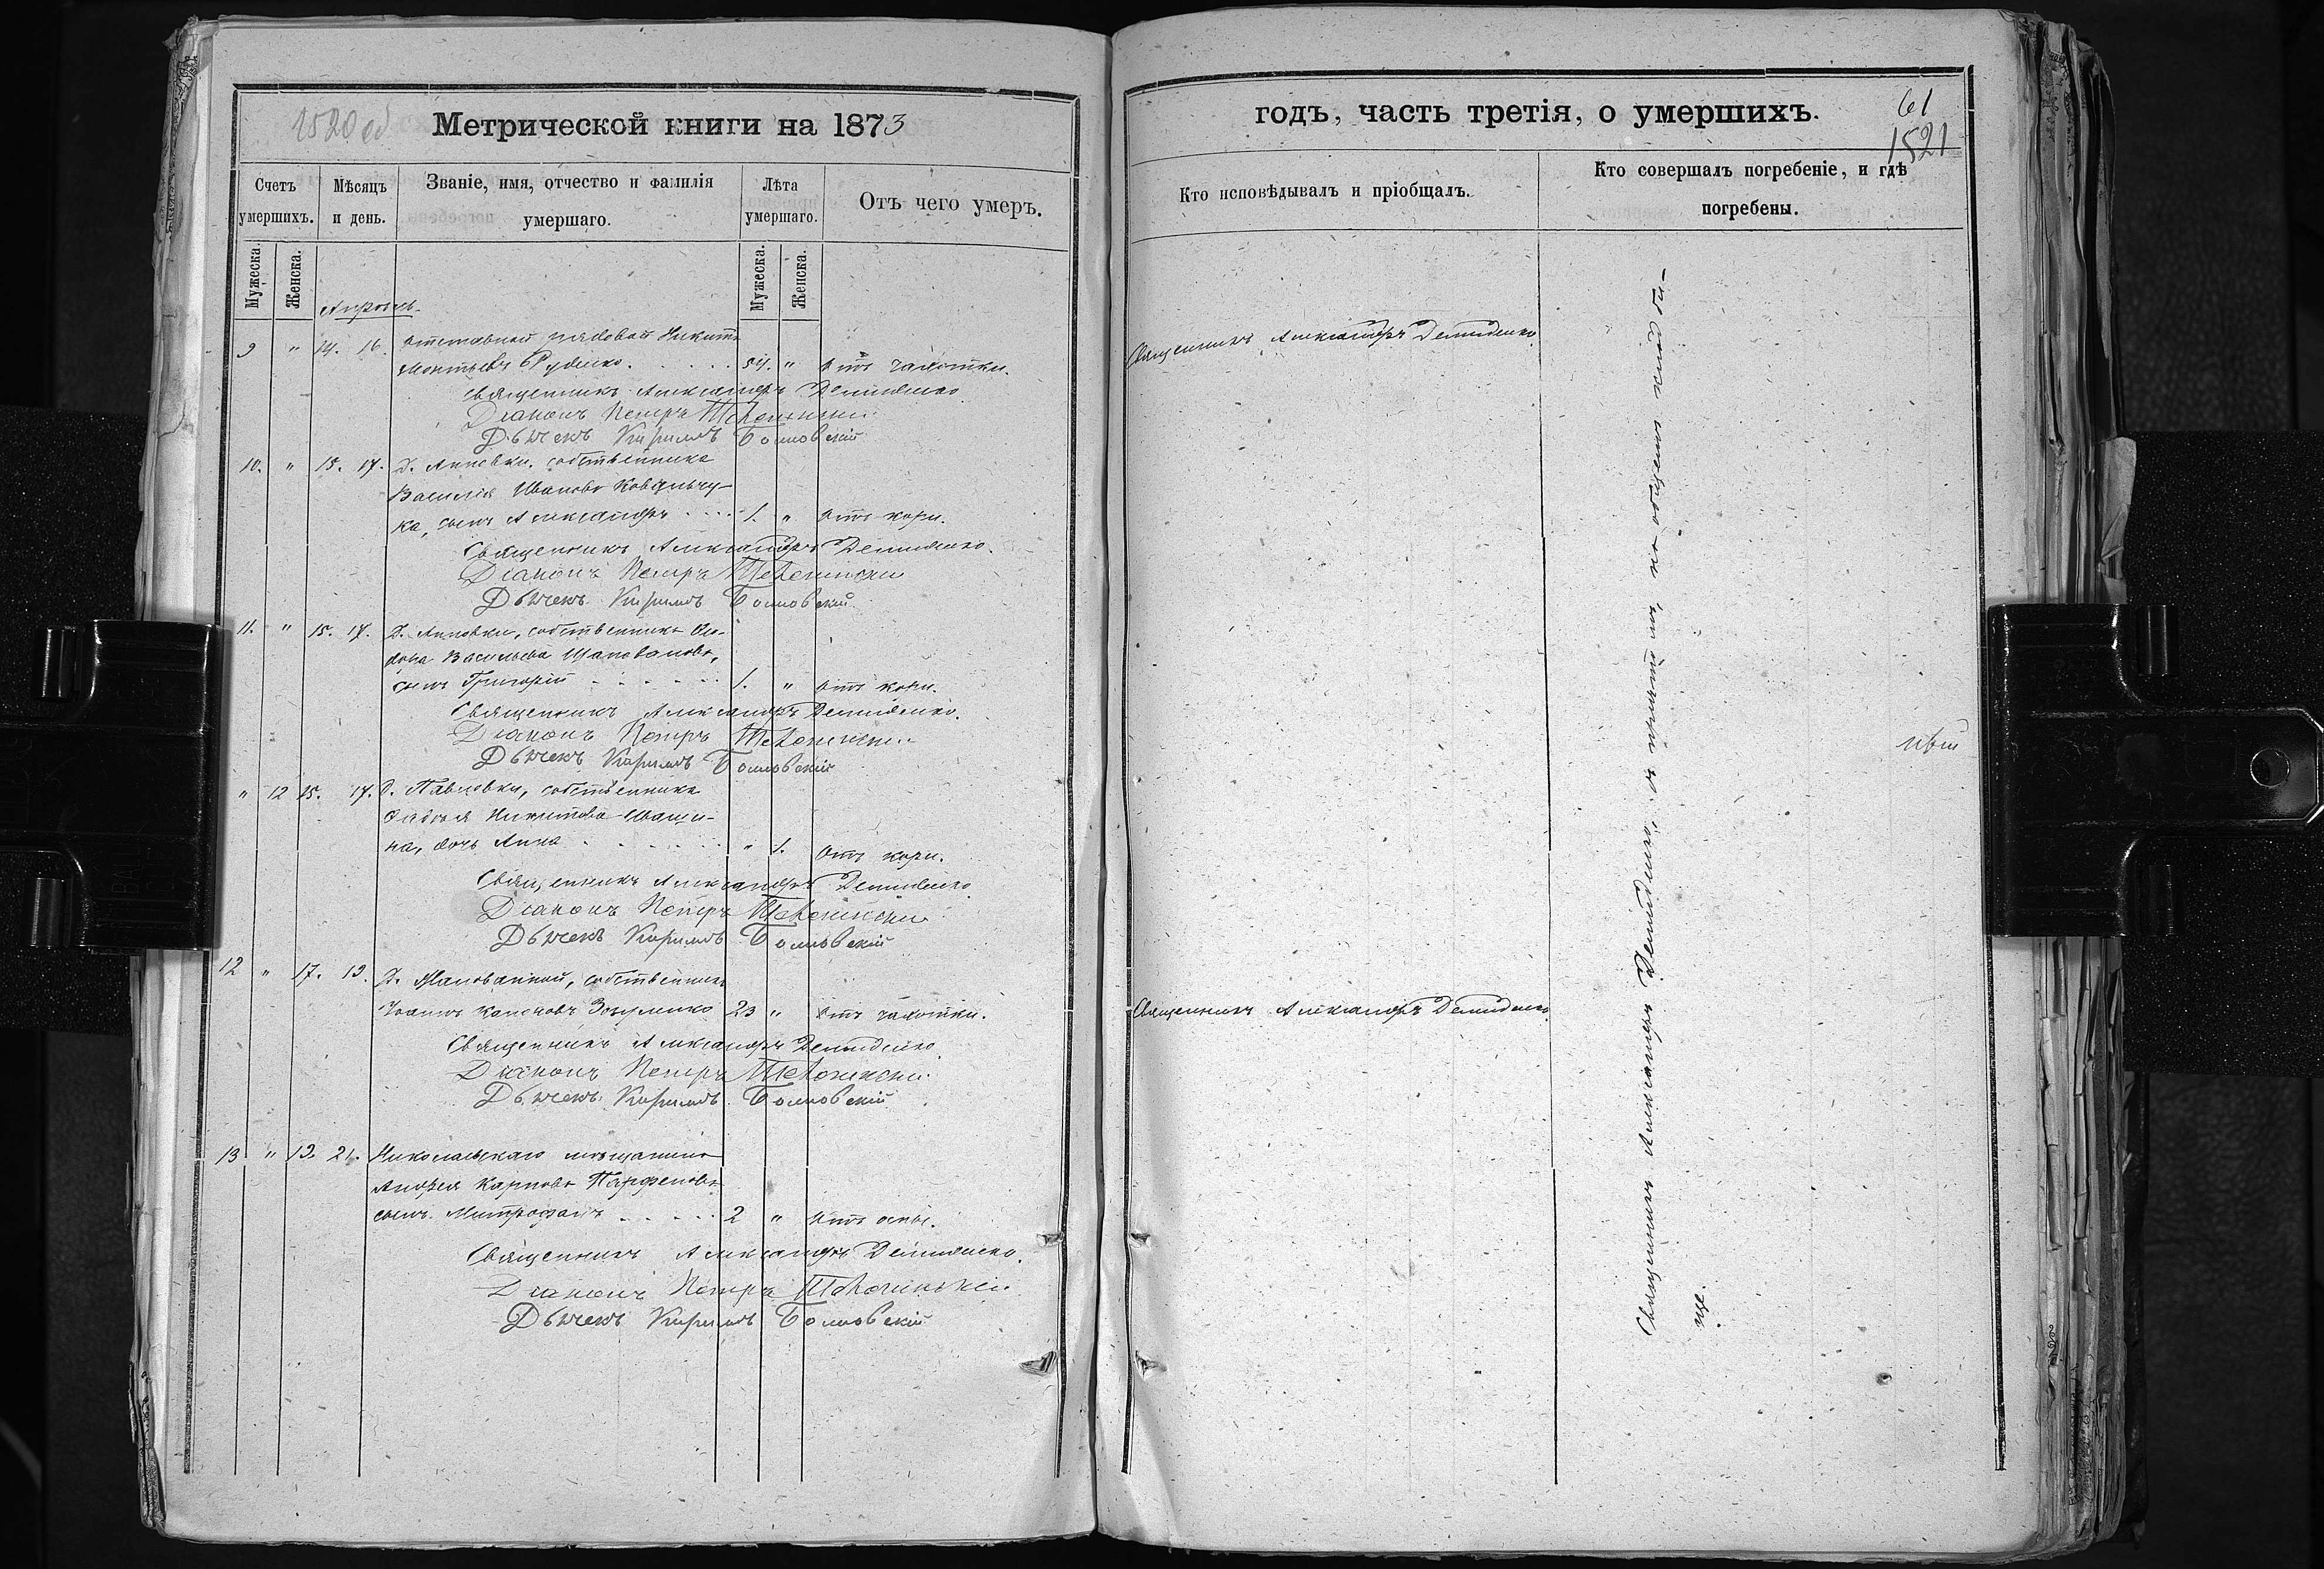 1520 об
Метрической книги на 1873
Счетъ умершихъ.
Мѣсяцъ и день.
Званіе, имя, отчество и фамилія умершаго.
Лѣта умершаго.
Отъ чего умеръ.
Мужеска.
Женска.
Мужеска.
Женска.
Апрѣль
9 " 14. 16. Отставной рядовой Никита
Монтьевъ Руденко 54. " Отъ чахотки.
Священникъ Александръ Демиденко
Діаконъ Петръ
Дьячекъ Кириллъ
10. " 15. 17. Д. Анновки, собственника
Василія Иванова Ковальчу-
ка, сынъ Александръ 1. " Отъ кори.
Священникъ Александръ Демиденко.
Діаконъ Петръ
Дьячекъ Кириллъ
11. " 15. 17. Д. Анновки, собственника
Васильева Шаповалова,
сынъ Григорій 1. " Отъ кори.
Священникъ Александръ Демиденко.
Діаконъ Петръ
Дьячекъ Кириллъ
" 12 15. 17. Д. Павловки, собственника
Никитова
на, дочь Анна " 1. Отъ кори.
Священникъ Александръ Демиденко
Діаконъ Петръ
Дьячекъ Кириллъ
12 " 17. 19. Д. собственникъ
23 " Отъ чахотки.
Священникъ Александръ Демиденко
Діаконъ Петръ
Дьячекъ Кириллъ
13 " 19. 21. Николаевскаго мѣщанина
Андрея Карпова Парфенова
сынъ Митрофанъ 2 " Отъ оспы.
Священникъ Александръ Демиденко.
Діаконъ Петръ
Дьячекъ Кириллъ
годъ, часть третія, о умершихъ.
61
1521
Кто исповѣдывалъ и пріобщалъ.
Кто совершалъ погребеніе, и гдѣ погребены.
Священникъ Александръ Демиденко
Священникъ Александръ Демиденко
Священникъ Александръ Демиденко, съ причтомъ, на общемъ кладби-
щѣ.